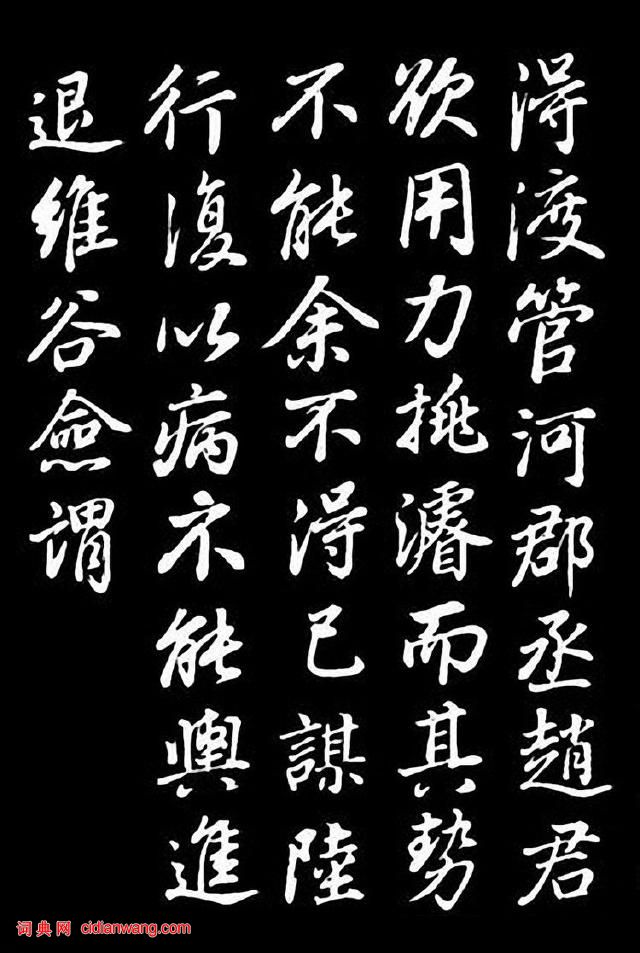 淂渡管河郡丞趙君
欲用力挑濬而其勢
不能余不淂已謀陸
行復以病不能輿進
退維谷僉謂
词典网 cidianwang.com